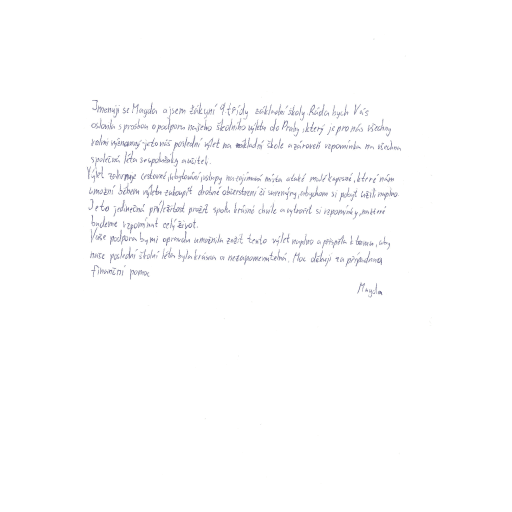 Jmenuji se Magda a jsem žákyní 9. třídy základní školy. Ráda bych Vás
oslovila s prosbou o podporu našeho školního výletu do Prahy, který je pro nás všechny
velmi významný je to náš poslední výlet na základní škole a zároveň vzpomínka na všechna
společná léta se spolužáky a učiteli.
Výlet zahrnuje cestovné, ubytování, vstupy na zajímavá místa a také malé kapesné, které nám
umožní během výletu zakoupit drobné občerstvení či suvenýry, abychom si pobyt užili naplno.
Je to jedinečná příležitost prožít spolu krásné chvíle a vytvořit si vzpomínky, na které
budeme vzpomínat celý život.
Vaše podpora by mi opravdu umožnila zažít tento výlet naplno a přispěla k tomu, aby
naše poslední školní léta byla krásná a nezapomenutelná. Moc děkuji za případnou
finanční pomoc
Magda